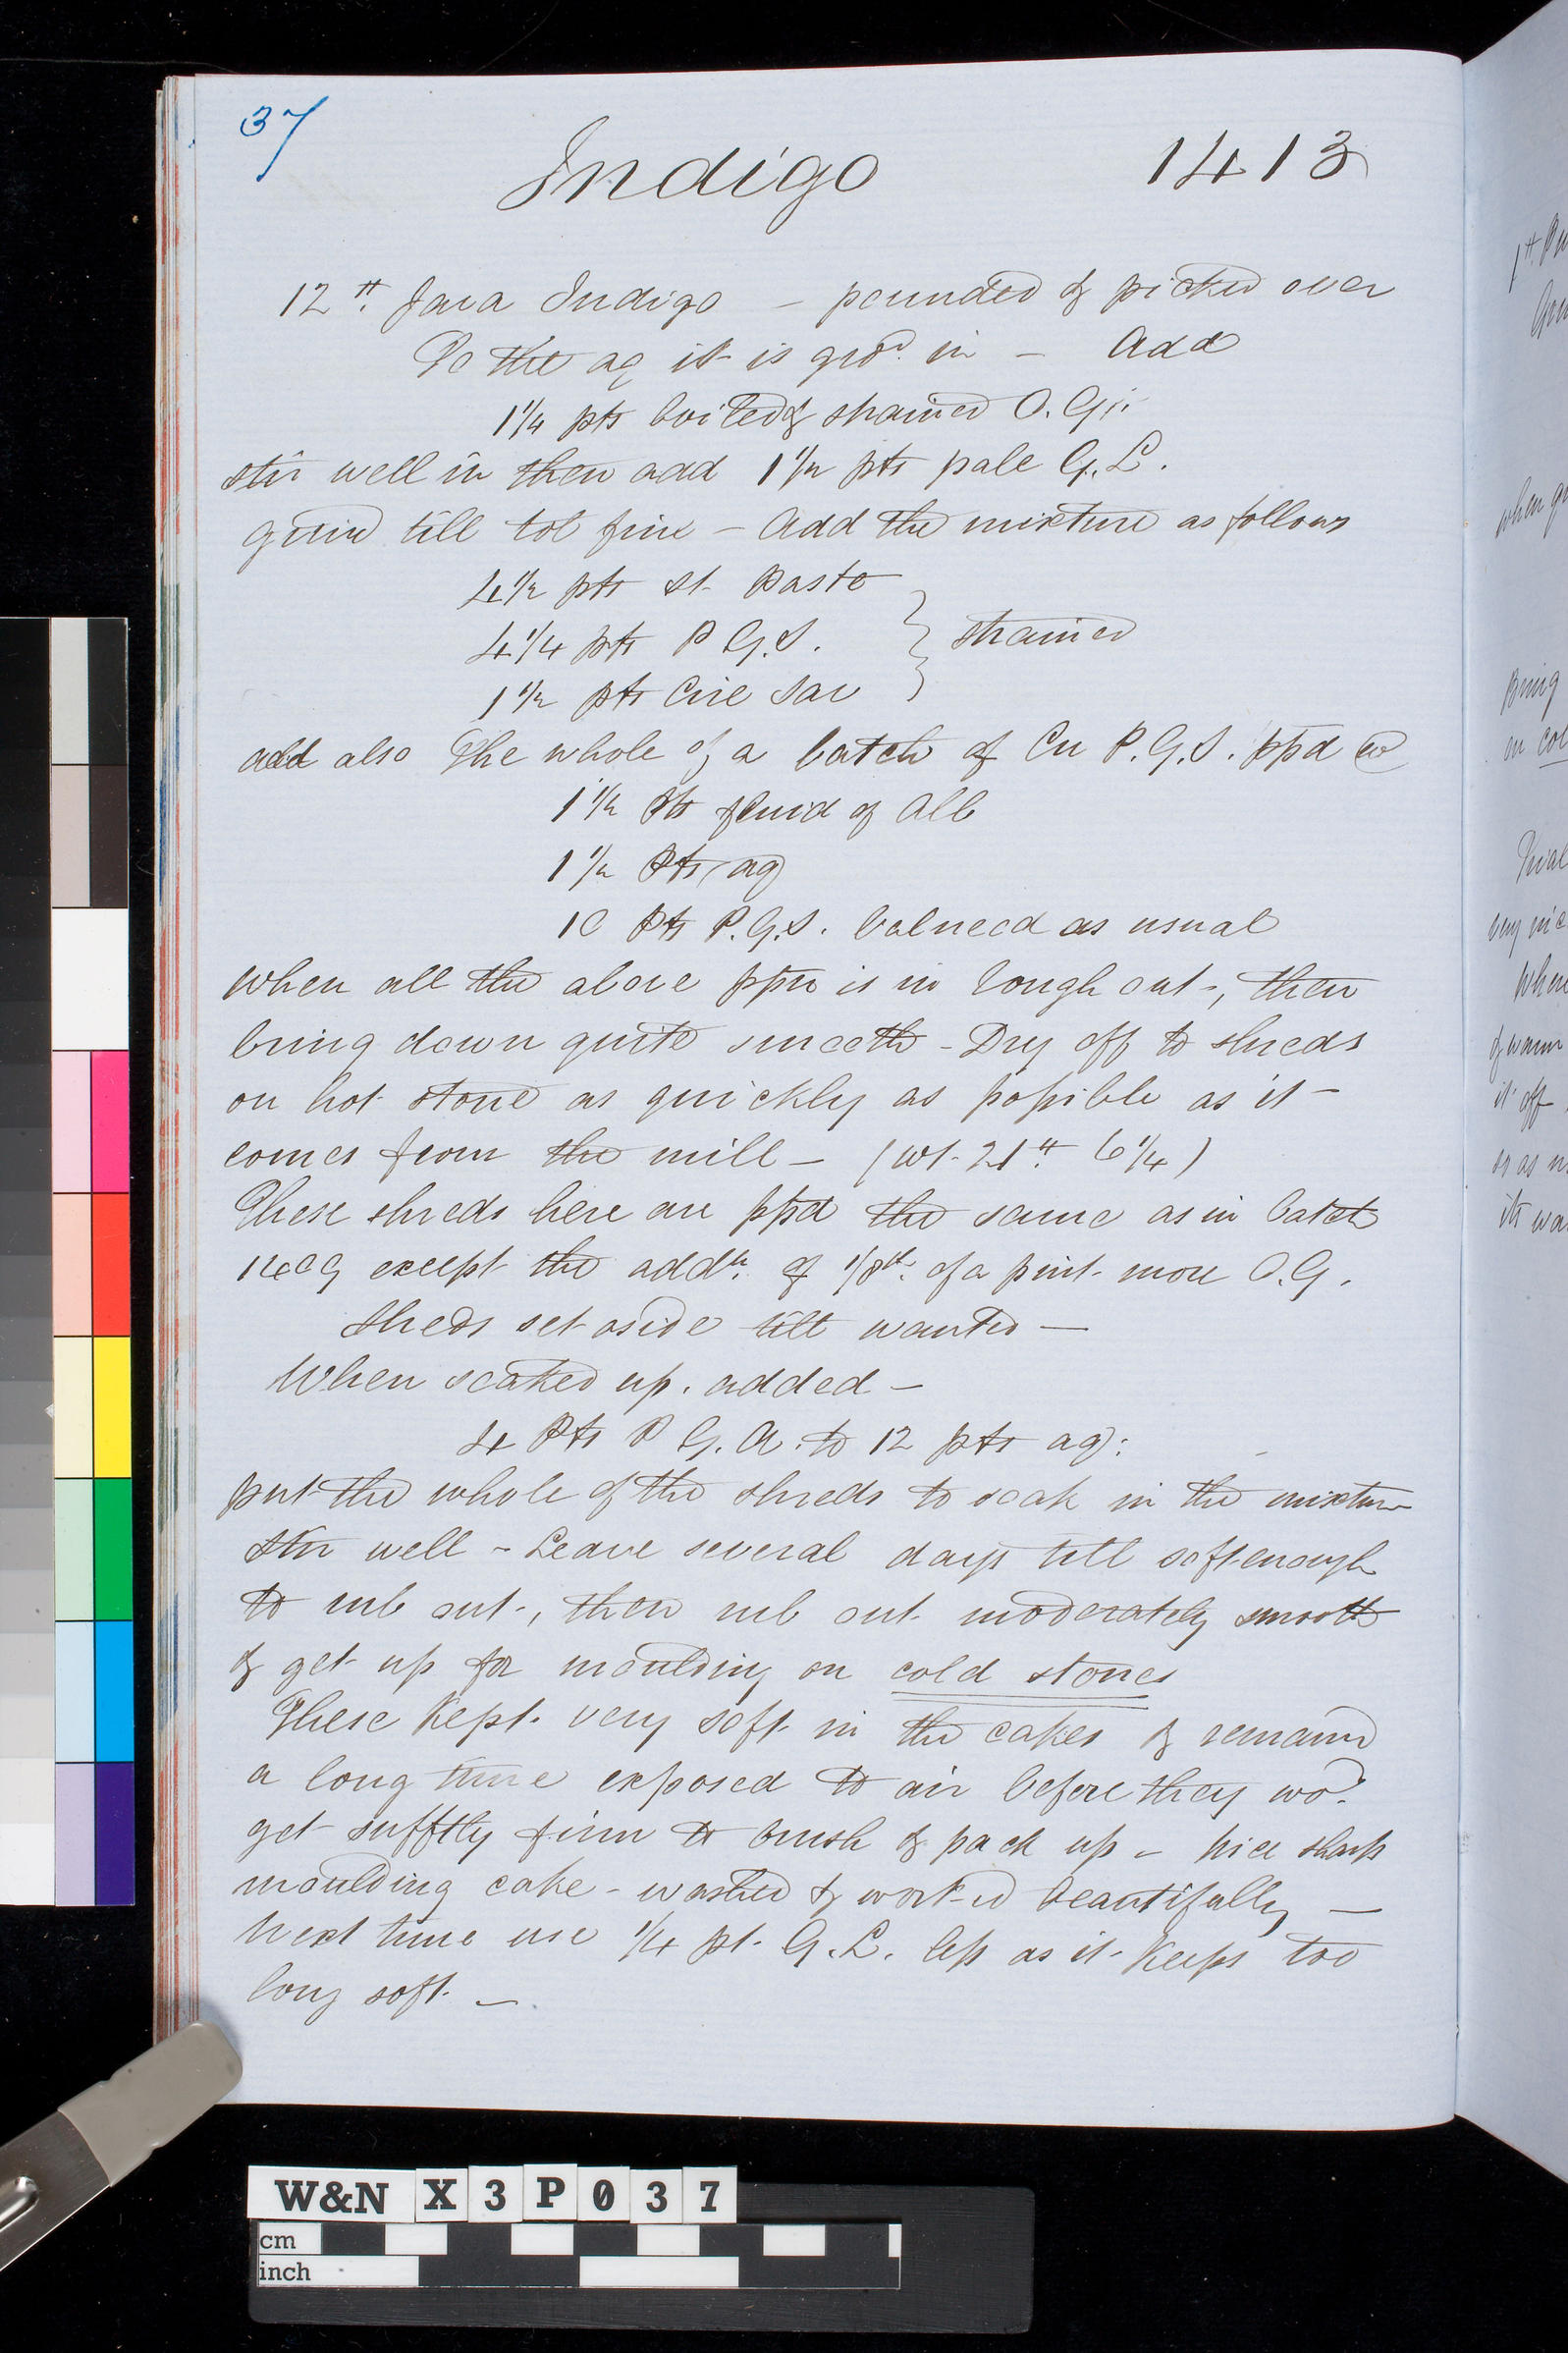 37
Indigo 1413
12 tt. Java Indigo – pounded & picked over
To the aq it is grd. in – Add
1 1/4 pts boiled & strained O.G.
stir well in then add 1 1/2 pts pale G.L.
grind till tol fine – Add the mixture as follows
4 1/2 pts St. Paste
4 1/4 pts P G.S. } strained
1 1/2 pts Cire Sav
add also the whole of a batch of Cu P.G.S. ppd w
1 1/2 Pts fluid of Alb
1 1/2 Pts aq
10 Pts P.G.S. balneod as usual
When all the above ppn is in rough out, then
bring down quite smooth – Dry off to shreds
on hot stone as quickly as possible as it
comes from the mill – (wt. 21 tt. 6 1/4)
These shreds here are ppd the same as in batch
1409 except the addn. of 1/8th. of a pint more O.G.
Shreds set aside till wanted –
When soaked up. added –
4 Pts P G. A. to 12 pts aq:
put the whole of the shreds to soak in the mixture
Stir well – Leave several days till soft enough
to rub out, then rub out moderately smooth
& get up for moulding on cold stones
These kept very soft in the cakes & remaind
a long time exposed to air before they wod.
get sufftly firm to brush & pack up – Nice sharp
moulding cake – washed & worked beautifully –
Next time use 1/4 pt. G.L. less as it keeps too
long soft. –
1 tt
when
Bring
on col
Trial
very nic
When
of warm
it off
so as
its wa
W&N X 3 P 0 3 7
cm
inch